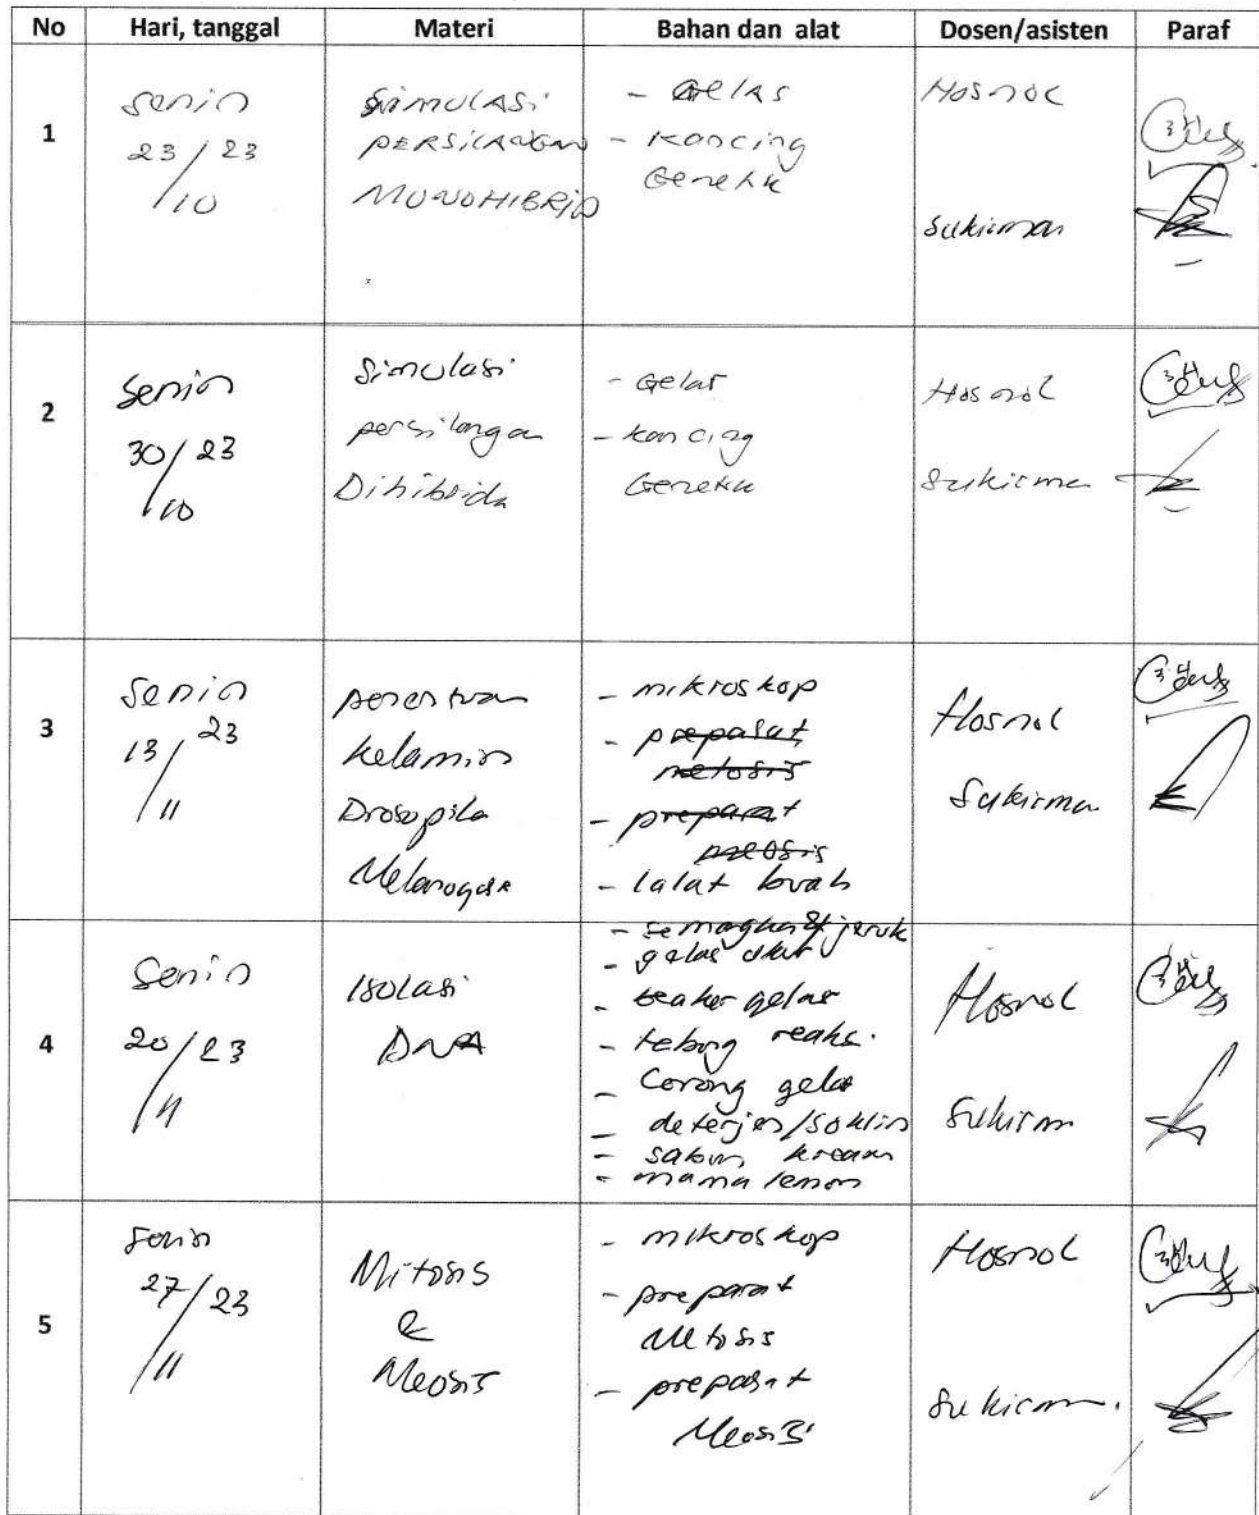 No Hari, tanggal Materi Bahan dan alat Dosen/asisten Paraf
1
Senin
23/23
/10
Simulasi
PERSILANGAN
MONOHIBRID
- Gelas
- Kancing
Genetik
Hosnol
Sukirman
2
Senin
30/23
/10
Simulasi
persilangan
Dihibrida
- Gelas
- kancing
Genetik
Hosnol
Sukirman
3
Senin
13/23
/11
penentuan
kelamin
Drosopila
- mikroskop
- preparat
metosis
- preparat
meosis
- lalat buah
Hosnol
Sukirman
4
Senin
20/23
/11
Isolasi
DNA
- semangka & jeruk
- gelas ukur
- beaker gelas
- tebung reaksi
- Corong gelas
- deterjen/soklin
- sabun kream
- mama lemon
Hosnol
Sukirman
5
Senin
27/23
/11
Mitosis
&
Meosis
- mikroskop
- preparat
Metosis
- preparat
Meosis
Hosnol
Sukirman.